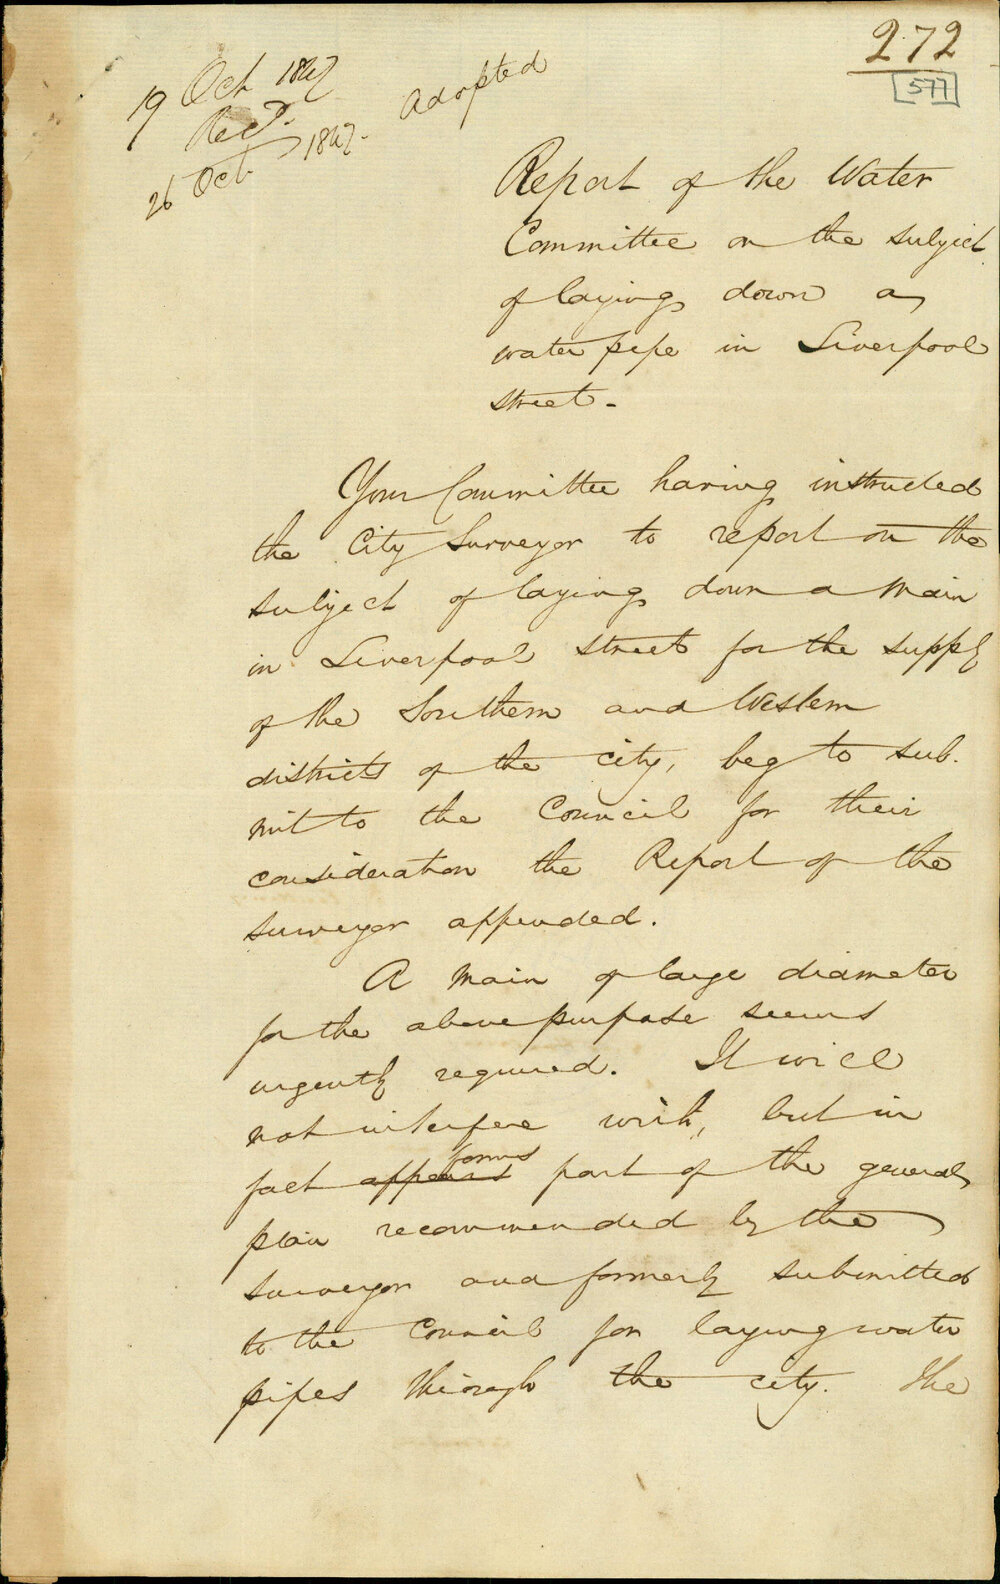 272
577
19 Oct 1847
Recd.
26 Oct. 1847.
Adopted
Report of the Water
Committee on the subject
of laying down a
water pipe in Liverpool
street.
Your Committee having instructed
the City Surveyor to report on the
subject of laying down a main
in Liverpool street for the supply
of the Southern and Western
districts of the city, beg to sub.
mit to the Council for their
consideration the Report of the
surveyor appended.
A main of large diameter
for the above purpose seems
urgently required. It will
not interfere with, but in
fact appears forms part of the general
plan recommended by the
surveyor and formerly submitted
to the Council for laying water
pipes through the city. The